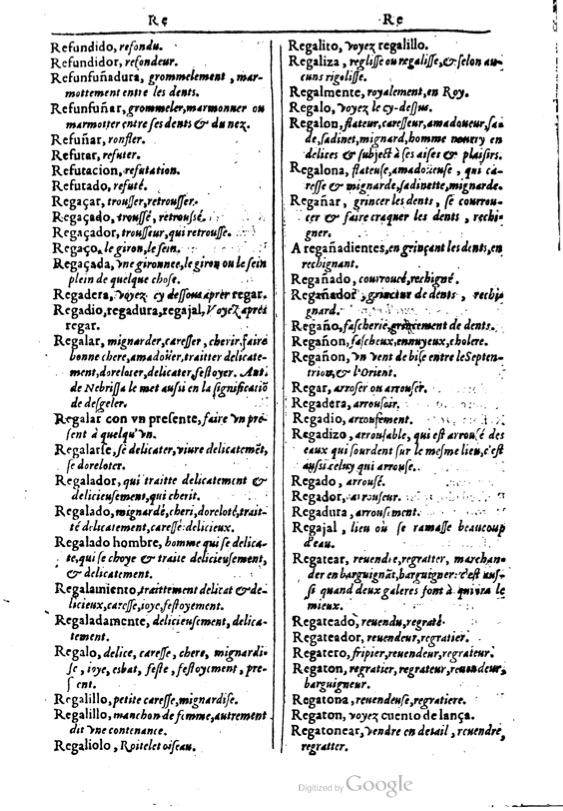 Re
Refundido, refondu.
Refundidor, refondeur.
Refunfuñadura, grommelement, mar-
mottement entre les dents.
Refunfuñar, grommeler, marmonner ou
marmotter entre ses dents & du nez.
Refuñar, ronfler.
Refutar, refuter.
Refutacion, refutation.
Refutado, refuté.
Regaçar, trousser, retrousser.
Regaçado, troussé, retroussé.
Regaçador, trousseur, qui retrousse.
Regaço, le giron, le sein.
Regaçada, vne gironnee, le giron ou le sein
plein de quelque chose.
Regadera, voyez cy dessous apres regar.
Regadio, regadura, regajal, Voyez apres
regar.
Regalar, mignarder, caresser, cherir, faire
bonne chere, amadoüer, traitter delicate-
ment, doreloter, delicater, festoyer. Ant.
de Nebrissa le met aussi en la significatiõ
de desgeler.
Regalar con vn presente, faire vn pre-
sent à quelqu'vn.
Regalarse, se delicater, viure delicatemẽt,
se doreloter.
Regalador, qui traitte delicatement &
delicieusement, qui cherit.
Regalado, mignardé, cheri, doreloté, trait-
té delicatement, caressé: delicieux.
Regalado hombre, homme qui se delica-
te, qui se choye & traite delicieusement,
& delicatement.
Regalamiento, traittement delicat & de-
licieux, caresse, ioye, festoyement.
Regaladamente, delicieusement, delica-
tement.
Regalo, delice, caresse, chere, mignardi-
se, ioye, esbat, feste, festoyment, pre-
sent.
Regalillo, petite caresse, mignardise.
Regalillo, manchon de femme, autrement
dit vne contenance.
Regaliolo, Roitelet oiseau.
Re
Regalito, voyez regalillo.
Regaliza, reglisse ou regalisse, & selon au-
cuns rigolisse.
Regalmente, royalement, en Roy.
Regalo, voyez le cy-dessus.
Regalon, flateur, caresseur, amadoueur, sa-
de, sadinet, mignard, homme nourry en
delices & subject à ses aises & plaisirs.
Regalona, flateuse, amadoüeuse, qui ca-
resse & mignarde, sadinette, mignarde.
Regañar, grincer les dents, se courrou-
cer & faire craquer les dents, rechi-
gner.
A regañadientes, en grinçant les dents, en
rechignant.
Regañado, courroucé, rechigné.
Regañador, grinceur de dents, rechi-
gnard.
Regaño, fascherie, grincement de dents.
Regañon, fascheux, ennuyeux, cholere.
Regañon, vn vent de bise entre le Septen-
trion, & l'Orient.
Regar, arroser ou arrouser.
Regadera, arrousoir.
Regadio, arrousement.
Regadizo, arrousable, qui est arrousé des
eaux qui sourdent sur le mesme lieu, c'est
aussi celuy qui arrouse.
Regado, arrousé.
Regador, arrouseur.
Regadura, arrousement.
Regajal, lieu où se ramasse beaucoup
d'eau.
Regatear, reuendre, regratter, marchan-
der en barguignãt, barguigner: c'est aus-
si quand deux galeres font à quivra le
mieux.
Regateado, reuendu, regraté.
Regateador, reuendeur, regratier.
Regatero, fripier, reuendeur, regrateur.
Regaton, regratier, regrateur, reuendeur,
barguigneur.
Regatona, reuendeuse, regratiere.
Regaton, voyez cuento de lança.
Regatonear, vendre en detail, reuendre,
regratter.
Digitized by Google